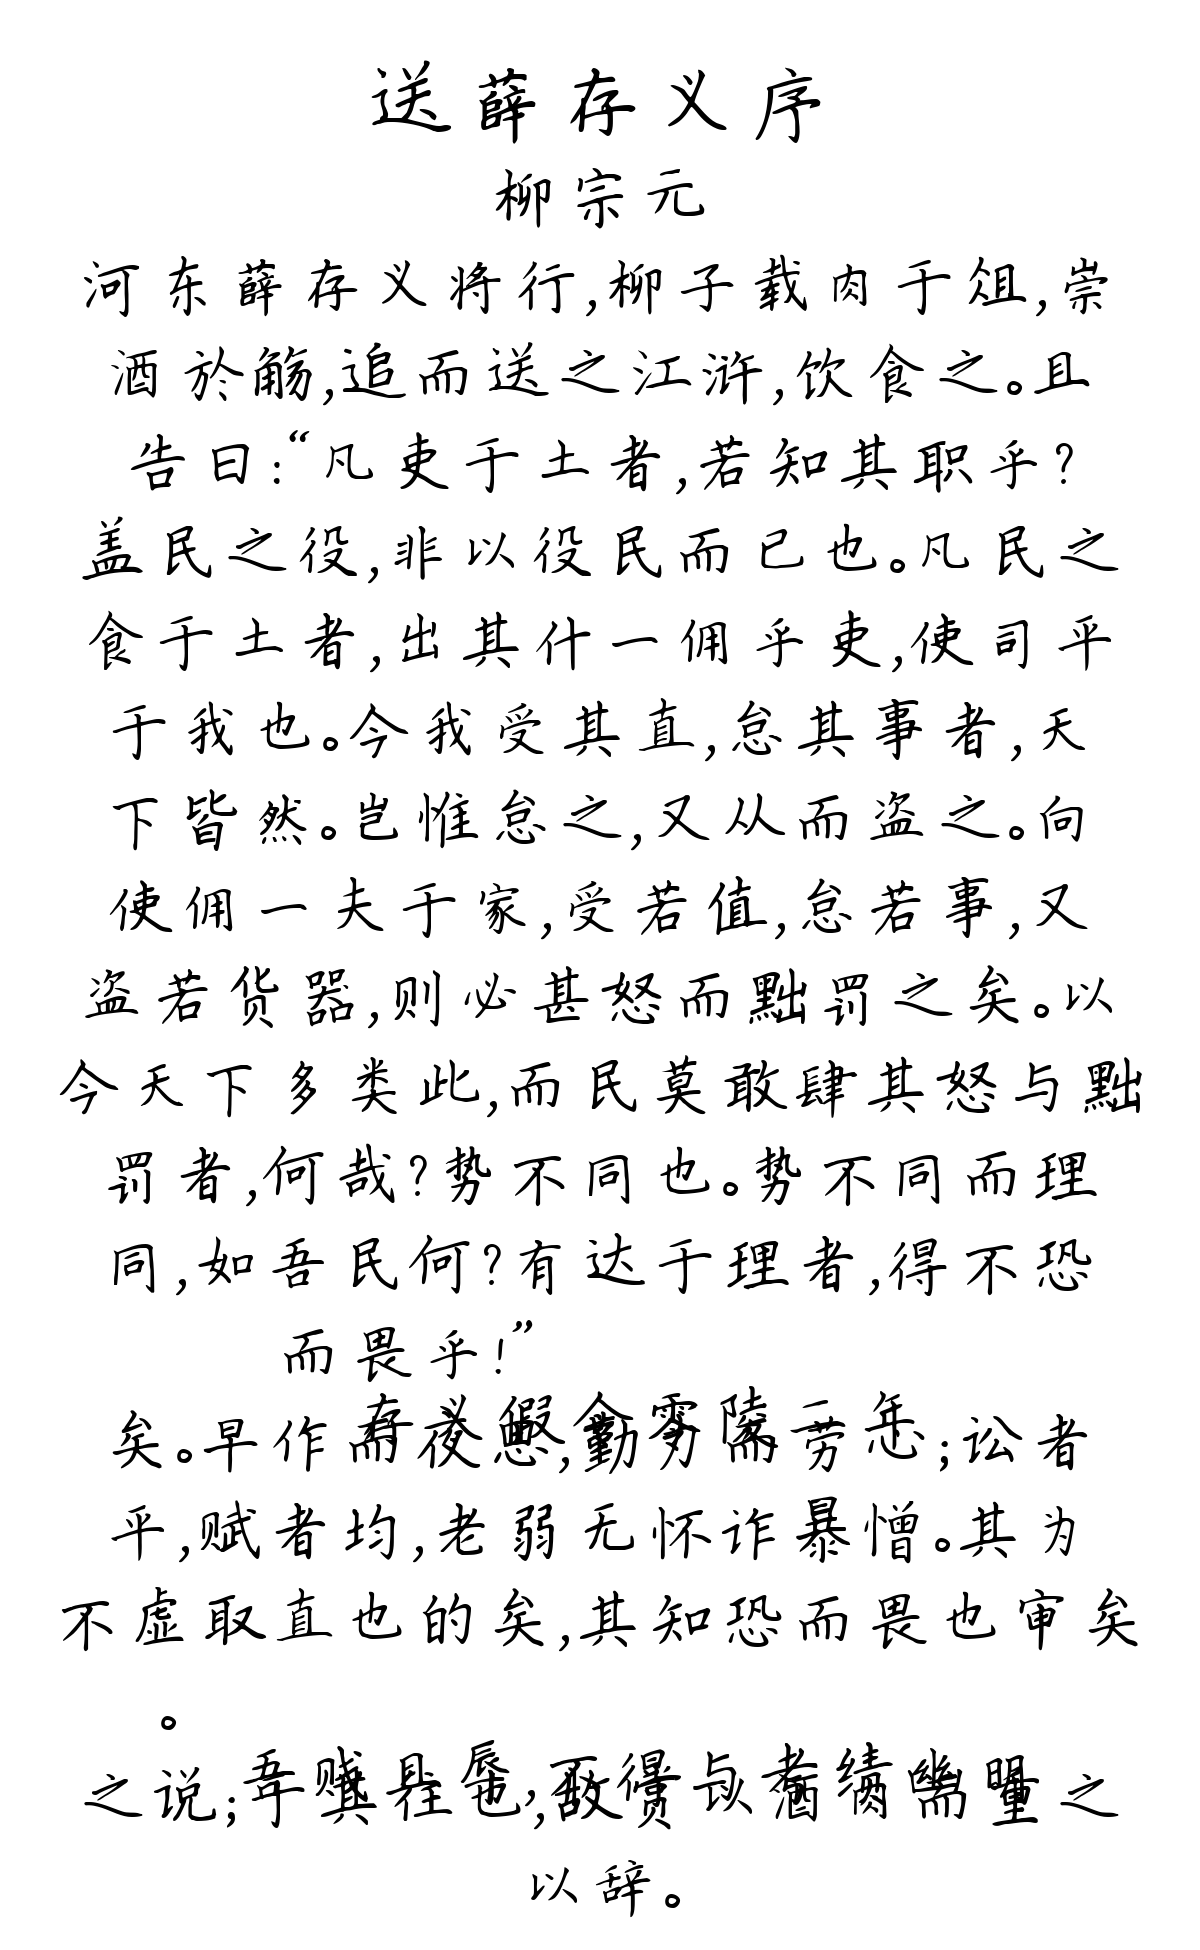 送薛存义序
柳宗元
河东薛存义将行,柳子载肉于俎,崇
酒於觞,追而送之江浒,饮食之。且
告曰:“凡吏于土者,若知其职乎?
盖民之役,非以役民而已也。凡民之
食于土者,出其什一佣乎吏,使司平
于我也。今我受其直,怠其事者,天
下皆然。岂惟怠之,又从而盗之。向
使佣一夫于家,受若值,怠若事,又
盗若货器,则必甚怒而黜罚之矣。以
今天下多类此,而民莫敢肆其怒与黜
罚者,何哉?势不同也。势不同而理
同,如吾民何?有达于理者,得不恐
而畏乎!”
存义假令零陵二年
矣。早作而夜思,勤力而劳心;讼者
平,赋者均,老弱无怀诈暴憎。其为
不虚取直也的矣,其知恐而畏也审矣
。
吾贱且辱,不得与考绩幽明
之说;于其往也,故赏以酒肉而重之
以辞。